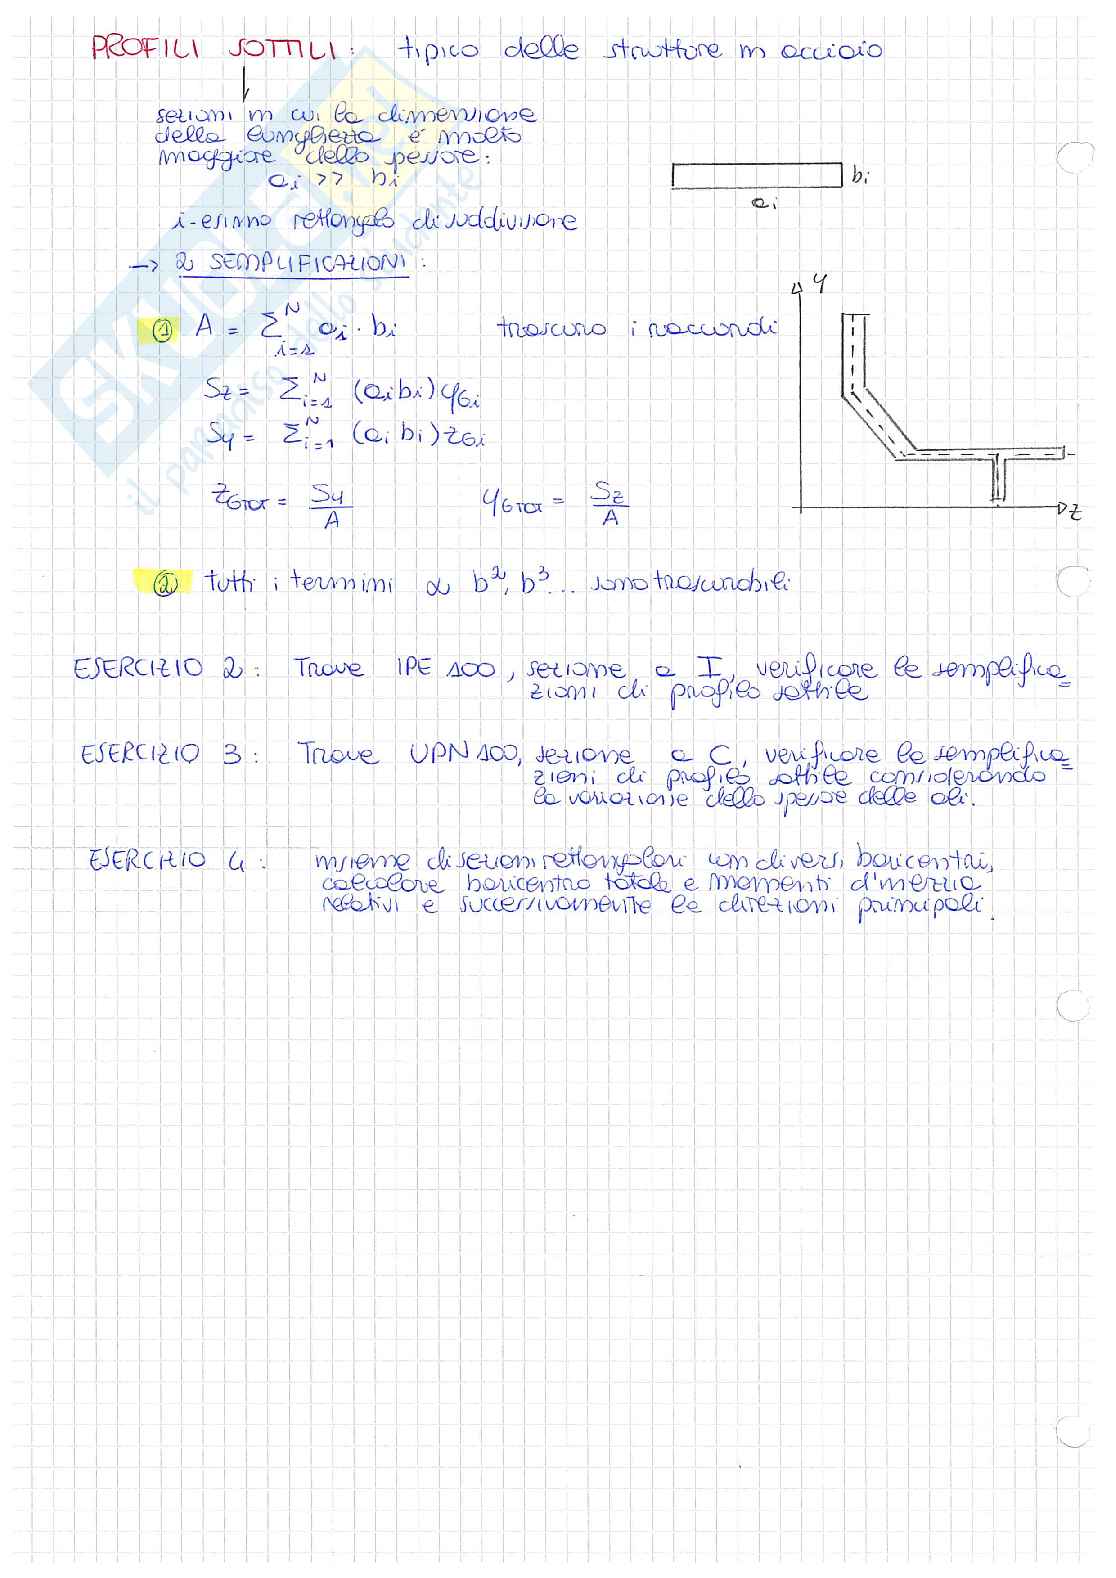 PROFILI SOTTILI: tipico delle strutture in acciaio
sezioni in cui la dimensione
della lunghezza è molto
maggiore dello spessore:
ai >> bi
bi
ai
i-esimo rettangolo di suddivisione
→ 2 SEMPLIFICAZIONI:
y
① A = Σ N i=1 ai · bi trascuro i raccordi
Sz = Σ N i=1 (ai bi) yGi
Sy = Σ N i=1 (ai bi) zGi
zGTOT = Sy/A yGTOT = Sz/A
z
② tutti i termini ∝ b², b³... sono trascurabili
ESERCIZIO 2: Trave IPE 100, sezione a I, verificare le semplifica=
zioni di profilo sottile
ESERCIZIO 3: Trave UPN 100, sezione a C, verificare le semplifica=
zioni di profilo sottile considerando
la variazione dello spessore delle ali.
ESERCIZIO 4: insieme di sezioni rettangolari con diversi baricentri,
calcolare baricentro totale e momenti d'inerzia
relativi e successivamente le direzioni principali.
SKUOLA.net
il paradiso dello studente